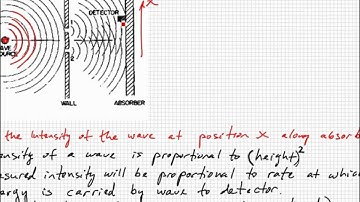 DETECTOR
x
1
WAVE
SOURCE
2
WALL
ABSORBER
the intensity of the wave at position x along absorb
ensity of a wave is proportional to (height)²
asured intensity will be proportional to rate at which
ergy is carried by wave to detector.